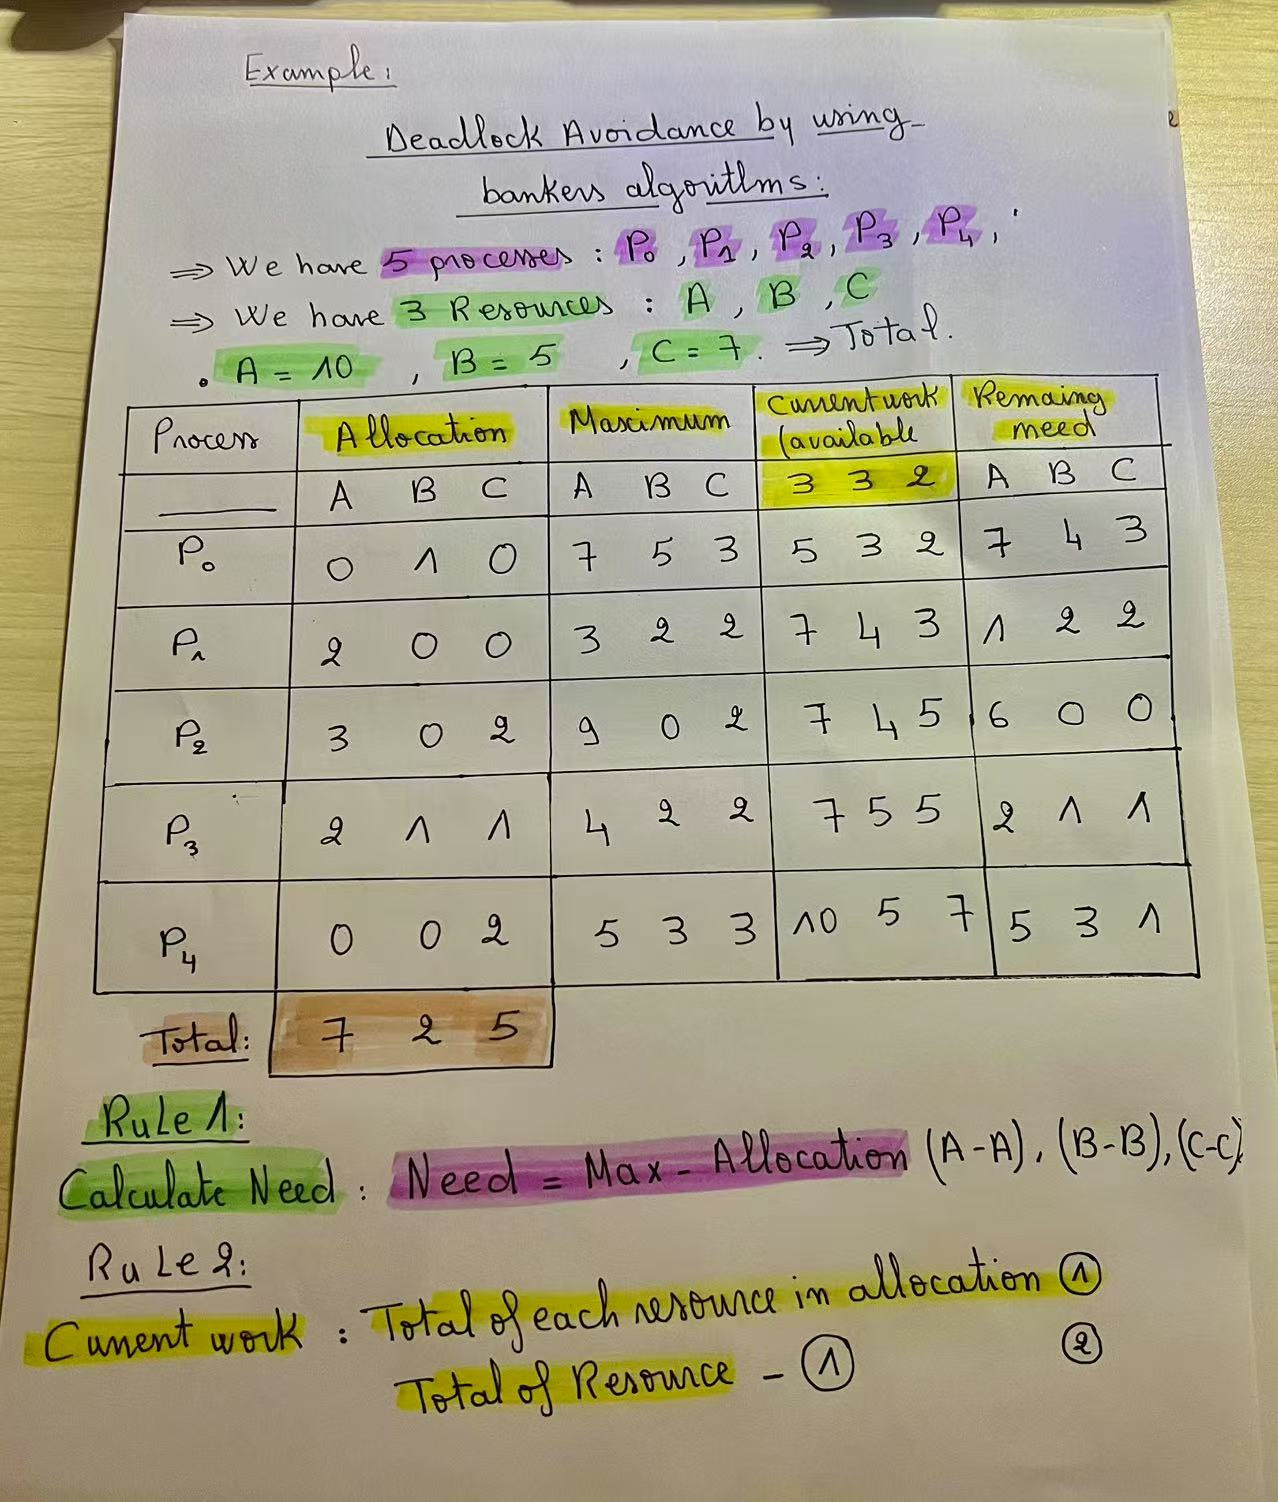 Example:
Deadlock Avoidance by using
bankers algorithms:
⇒ We have 5 processes : P0 , P1 , P2 , P3 , P4 ,
⇒ We have 3 Resources : A , B , C
. A = 10 , B = 5 , C = 7. ⇒ Total.
Process Allocation Maximum Current work (available Remaing need
A B C A B C 3 3 2 A B C
P0 0 1 0 7 5 3 5 3 2 7 4 3
P1 2 0 0 3 2 2 7 4 3 1 2 2
P2 3 0 2 9 0 2 7 4 5 6 0 0
P3 2 1 1 4 2 2 7 5 5 2 1 1
P4 0 0 2 5 3 3 10 5 7 5 3 1
Total: 7 2 5
Rule 1:
Calculate Need : Need = Max - Allocation (A-A), (B-B), (C-C).
Rule 2:
Current work : Total of each resource in allocation ①
Total of Resource - ① ②